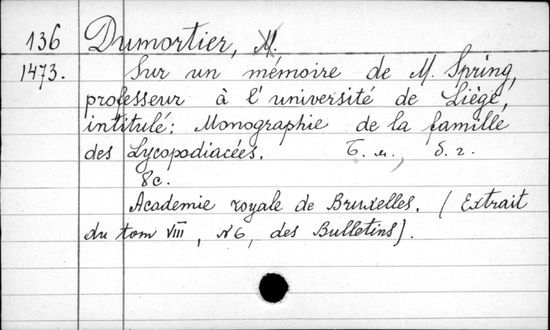 136 Dumortier, M.
1473. Sur un mémoire de M. Spring,
professeur à l'université de Liège,
intitulé: Monographie de la famille
des Lycopodiacées. Б. м., б. г.
8с.
Academie royale de Bruxelles. (Extrait
du tom VIII, N6, des Bulletins).